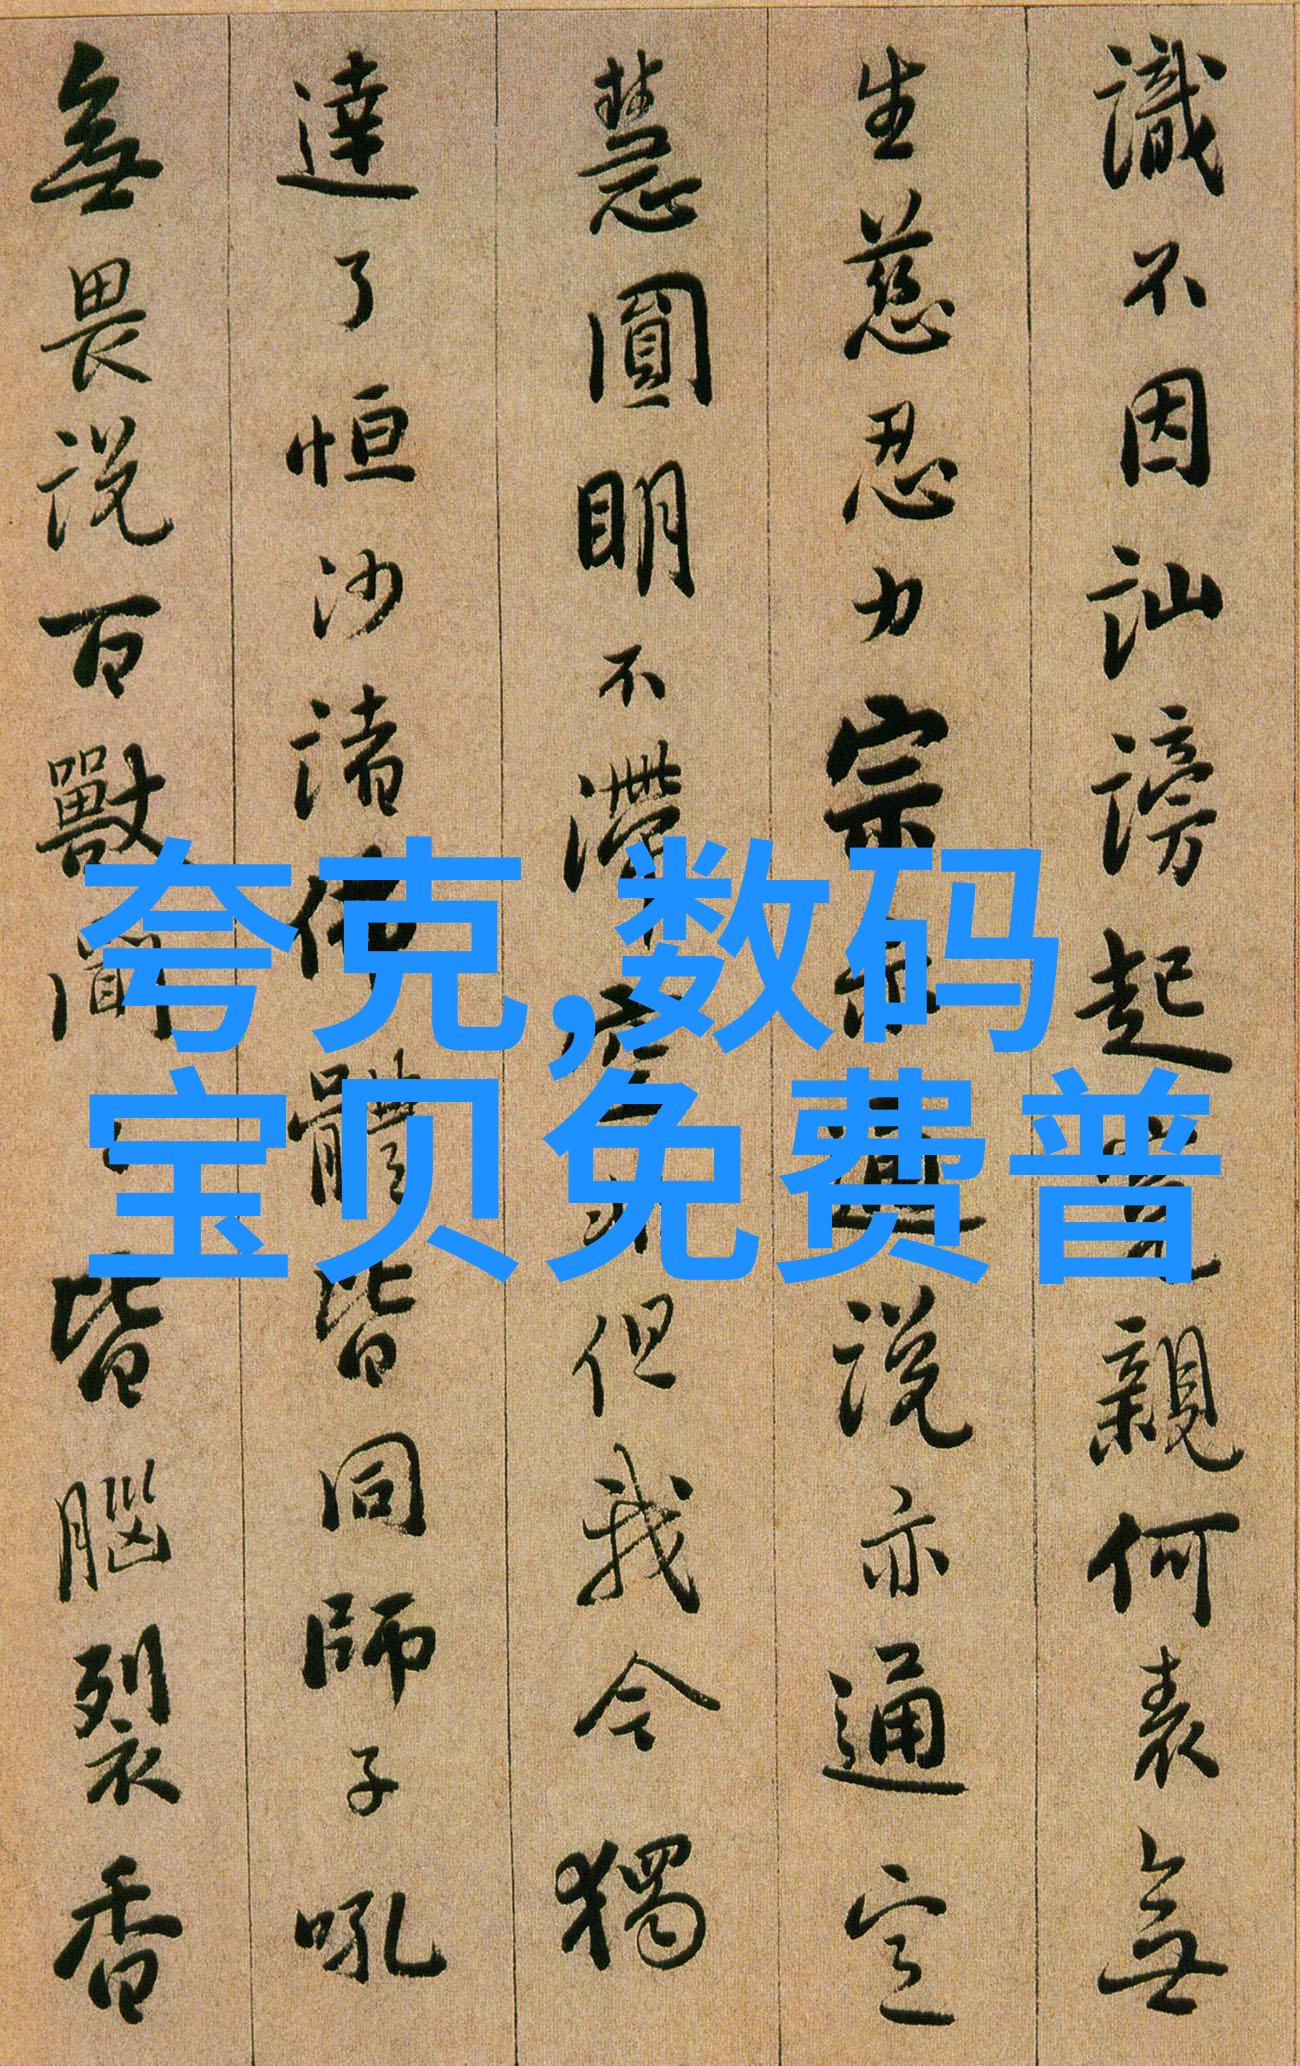 識不因訕謗起親何表無
生慈忍力宗亦通說亦通定
慧圓明不滯空但我今獨
達了恒沙諸佛體皆同師子吼
無畏說百獸聞皆腦裂香
夸克,数码
宝贝免费普